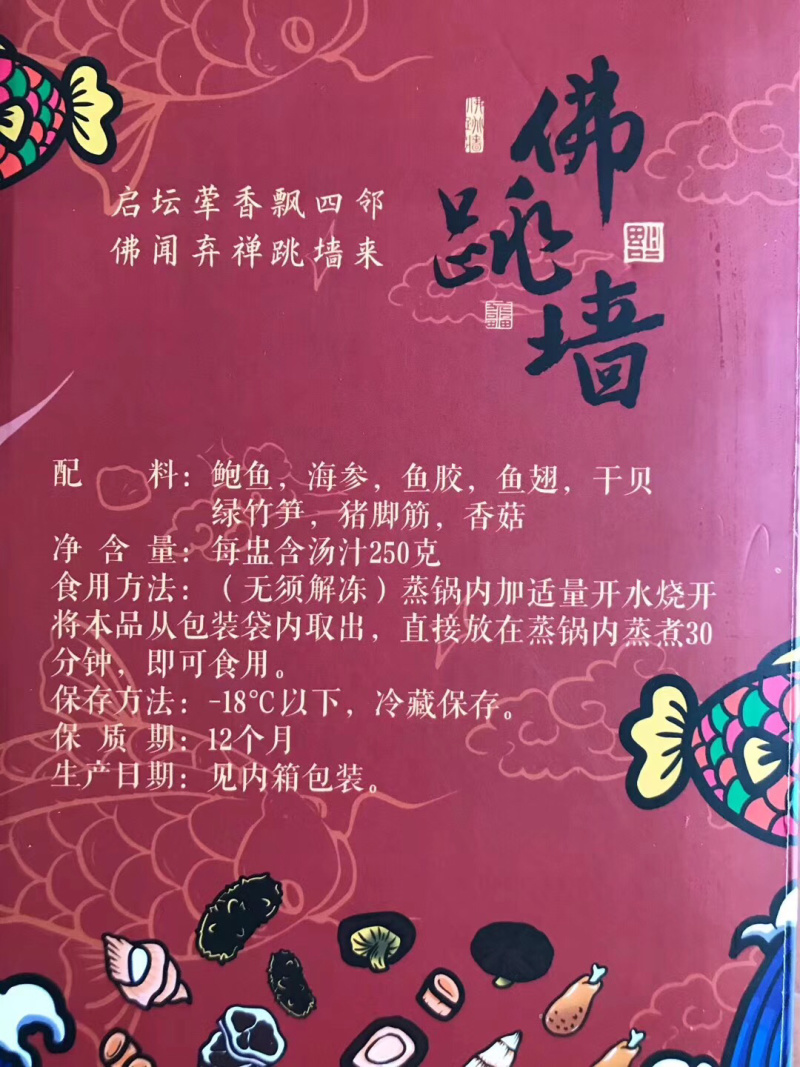 佛跳墙
启坛荤香飘四邻
佛闻弃禅跳墙来
配 料：鲍鱼，海参，鱼胶，鱼翅，干贝
绿竹笋，猪脚筋，香菇
净含量：每盅含汤汁250克
食用方法：（无须解冻）蒸锅内加适量开水烧开
将本品从包装袋内取出，直接放在蒸锅内蒸煮30
分钟，即可食用。
保存方法：-18℃以下，冷藏保存。
保质期：12个月
生产日期：见内箱包装。